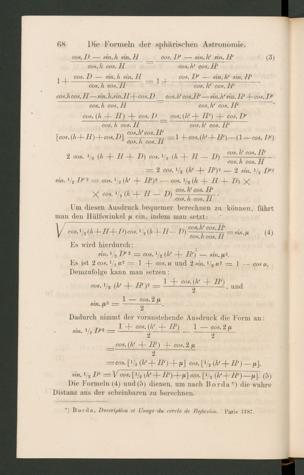 68 Die Formeln der sphärischen Astronomie.
cos. D — sin. h sin. H / cos. h cos. H = cos. D' — sin. h' sin. H' / cos. h' cos. H' (3)
1 + cos. D — sin. h sin. H / cos. h cos. H = 1 + cos. D' — sin. h' sin. H' / cos. h' cos. H'
cos. h cos. H — sin. h sin. H + cos. D / cos. h cos. H = cos. h' cos. H' — sin. h' sin. H' + cos. D' / cos. h' cos. H'
cos. (h + H) + cos. D / cos. h cos. H = cos. (h' + H') + cos. D' / cos. h' cos. H'
[cos. (h+H) + cos. D] cos. h' cos. H' / cos. h cos. H = 1 + cos. (h' + H') — (1 — cos. D')
2 cos. ½ (h + H + D) cos. ½ (h + H — D) cos. h' cos. H' / cos. h cos. H
= 2 cos. ½ (h' + H')² — 2 sin. ½ D'²
sin. ½ D'² = cos. ½ (h' + H')² — cos. ½ (h + H + D) ×
× cos. ½ (h + H — D) cos. h' cos. H' / cos. h cos. H
Um diesen Ausdruck bequemer berechnen zu können, führt
man den Hülfswinkel μ ein, indem man setzt:
√ cos. ½ (h + H + D) cos. ½ (h + H — D) cos. h' cos. H' / cos. h cos. H = sin. μ (4)
Es wird hierdurch:
sin. ½ D'² = cos. ½ (h' + H')² — sin. μ².
Es ist 2 cos. ½ α² = 1 + cos. α und 2 sin. ½ α² = 1 — cos α,
Demzufolge kann man setzen:
cos. ½ (h' + H')² = 1 + cos. (h' + H') / 2, und
sin. μ² = 1 — cos. 2 μ / 2
Dadurch nimmt der voranstehende Ausdruck die Form an:
sin. ½ D'² = 1 + cos. (h' + H') / 2 — 1 — cos. 2 μ / 2
= cos. (h' + H') + cos. 2 μ / 2
= cos. [½ (h' + H') + μ] cos. [½ (h' + H') — μ].
sin. ½ D' = √ cos. [½ (h' + H') + μ] cos. [½ (h' + H') — μ]. (5)
Die Formeln (4) und (5) dienen, um nach Borda *) die wahre
Distanz aus der scheinbaren zu berechnen.
*) Borda, Description et Usage du cercle de Reflexion. Paris 1787.